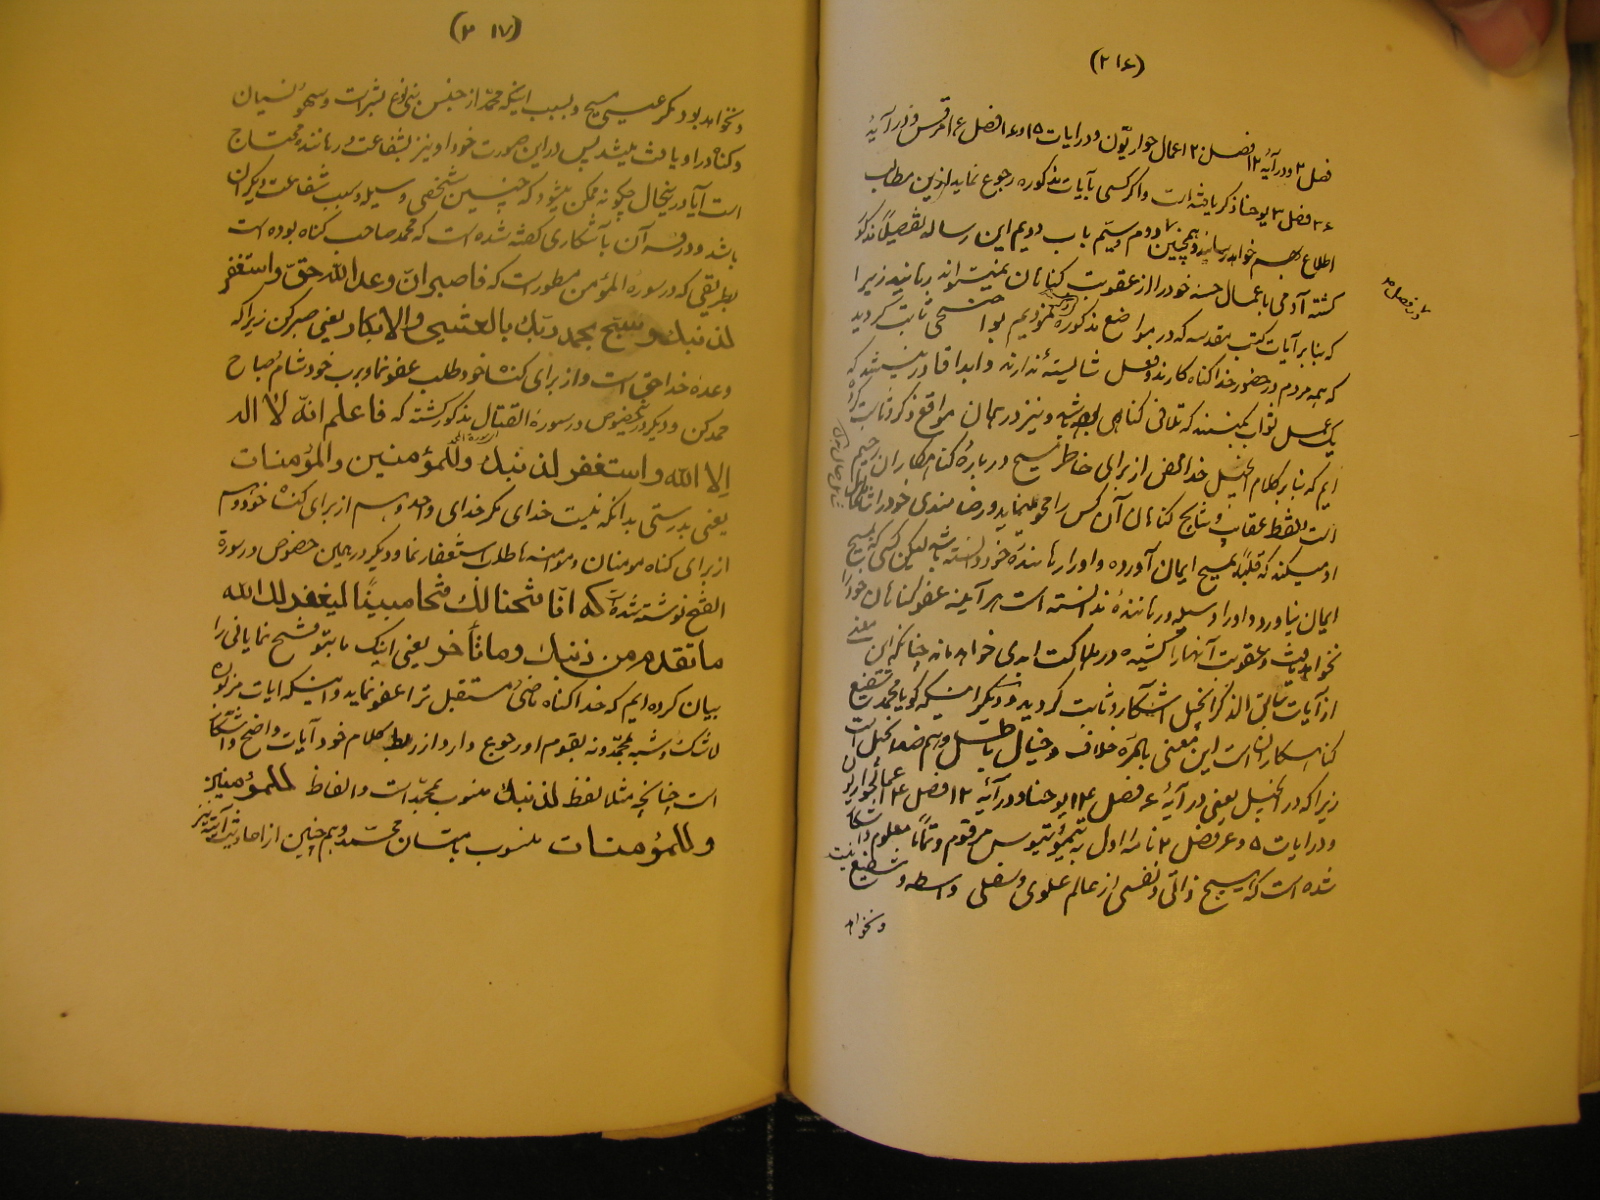 (۲۱۶)
فصل ۳ و در آیهٔ ۱۲ فصل ۴ اعمال حواریّون و در ایات ۱۵ و ۱۶ فصل ۱۶ مرقس و در آیهٔ
۳۶ فصل ۳ یوحنا ذکر یافته است و اگر کسی بآیات مذکوره رجوع نماید ازین مطالب
اطلاع بهم خواهد رسانید و همچنین در دوم و سیّم باب دویم این رساله تفصیلاً مذکور
در فصل
کشته آدمی با عمال حسنه خود را از عقوبت کناهان نمیتواند رهانید زیرا
که بنابر آیات کتب مقدسه که در مواضع مذکوره ذکر نمودیم بواضحی ثابت کردید
که همه مردم در حضور خدا کناه کارند و فعل شایستهٔ ندارند و ابدا قادر نیستند که
یک عمل ثواب بکنند که تلافی کناهی بوده باشد و نیز در همان مواقع ذکر و ثابت کرده
ایم که بنابر کلام انجیل خدا محض از برای خاطر مسیح دربارهٔ کناهکاران رحیم
است و فقط عقاب و نتایج کناهان آن کس را محو مینماید و رضامندی خود را شامل حال
او میکند که قلباً بمسیح ایمان آورده و او را رهانندهٔ خود دانسته باشد لیکن کسی که بمسیح
ایمان نیاورد و او را وسیله و رهانندهٔ ندانسته است هر آینه عفو کناهان خود را
نخواهد یافت و عقوبت آنها را کشیده در هلاکت ابدی خواهد ماند چنانکه این معنی
از آیات سابق الذکر انجیل اشکار و ثابت کردید و دیگر اینکه کویا محمد شفیع
کناهکاران است این معنی بالمره خلاف و خیال باطل و هم ضد انجیل است
زیرا که در انجیل یعنی در آیهٔ ۶ فصل ۱۴ یوحنا و در آیهٔ ۱۲ فصل ۴ اعمال حواریون
و در ایات ۵ و ۶ فصل ۲ نامهٔ اول به تیموتیوس مرقوم و تماماً معلوم و آشکار
شده است که جز مسیح ذاتی و نفسی از عالم علوی و سفلی واسطه و شفیع نیست
و نخواهد
(۲۱۷)
و نخواهد بود مگر عیسی مسیح و بسبب اینکه محمد از جنس بنی نوع بشر است و سهو و نسیان
و کناه در او یافت میشد پس در این صورت خود او نیز بشفاعت و رهاننده محتاج
است آیا در ینحال چکونه ممکن میشود که چنین شخصی وسیله و سبب شفاعت دیگران
باشد و در قرآن بآشکاری کفته شده است که محمد صاحب کناه بوده است
بطریقی که در سورهٔ المؤمن مسطور است که فاصبر انّ وعد الله حقّ و استغفر
لذنبك و سبّح بحمد ربّك بالعشیّ والابکار یعنی صبر کن زیرا که
وعدهٔ خدا حق است و از برای کناه خود طلب عفو نما و برب خود شام و صباح
حمد کن و دیگر در یخصوص در سورهٔ القتال مذکور کشته که فاعلم انّه لا اله
الا الله و استغفر لذنبك وللمؤمنین والمؤمنات
یعنی بدرستی بدانکه نیست خدای مکر خدای واحد و هم از برای کناه خود و هم
از برای کناه مومنان و مومنه ها طلب استغفار نما و دیگر در همین خصوص در سورهٔ
الفتح نوشته شده که انّا فتحنا لك فتحا مبینًا لیغفر لك الله
ما تقدم من ذنبك وما تأخر یعنی اینک ما بتو فتح نمایانی را
بیان کرده ایم که خدا کناه ماضی و مستقبل ترا عفو نماید و اینکه ایات مزبوره
لاشک و شبه بمحمد و نه بقوم او رجوع دارد از ربط کلام خود آیات واضح و آشکار
است چنانچه مثلا لفظ لذنبك منسوب بمحمد است و الفاظ للمؤمنین
وللمؤمنات منسوب بامتسان محمد و هم چنین از احادیث نیز